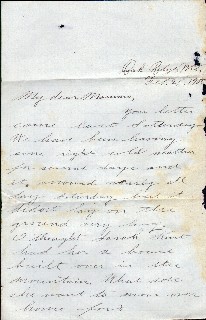 My dear Mamma,
Your letter
came last Saturday.
We have been having
some right cold weather
for several days and
it snowed nearly all
day Saturday but it
didn't lay on the
ground very long.
I thought Sarah
had her a house
built over in the
mountains. What does
she want to move over
for